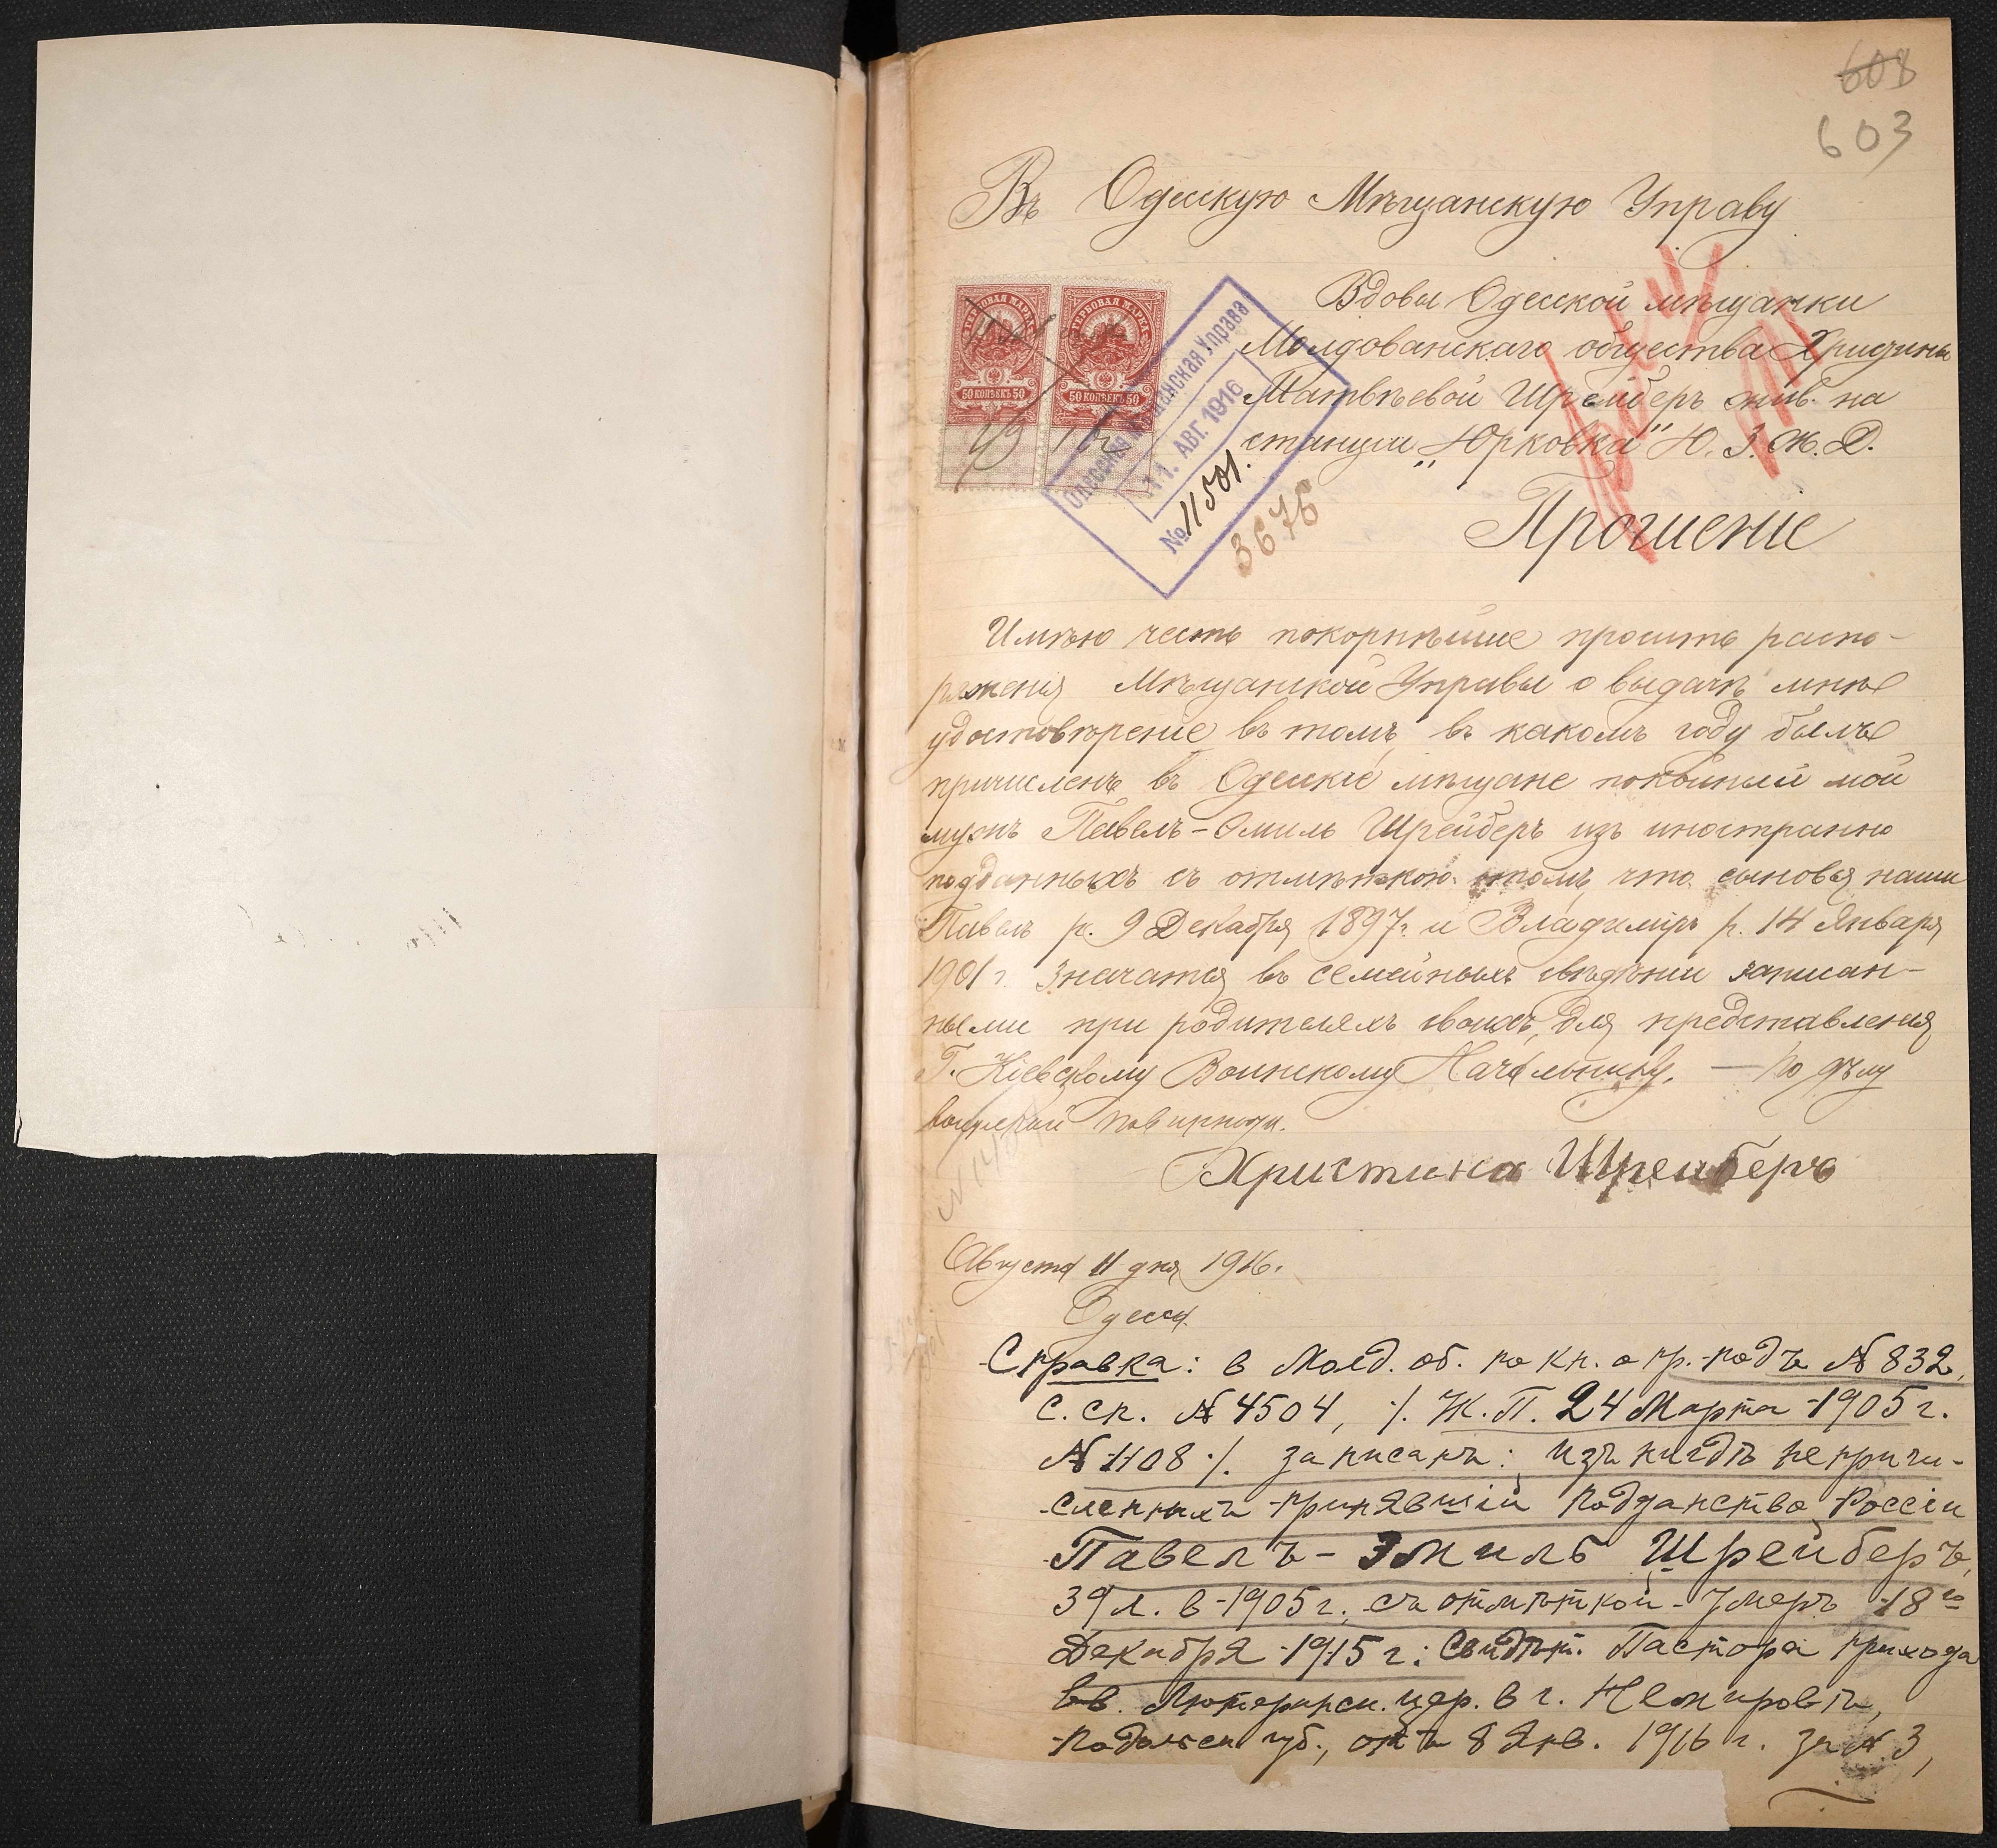 608
603
Въ Одесскую Мѣщанскую Управу
Вдовы Одесской мѣщанки
Молдованскаго общества Христины
Матвѣевой Шрейберъ жив. на
станции „Юрковка" Ю. З. Ж. Д.
ГЕРБОВАЯ МАРКА
ГЕРБОВАЯ МАРКА
50 КОПѢЕКЪ 50
50 КОПѢЕКЪ 50
Одесская Мѣщанская Управа
11. АВГ. 1916
№ 11501.
3676
Прошеніе
Имѣю честь покорнѣйше просить распо-
ряженія Мѣщанской Управы о выдачѣ мнѣ
удостовѣреніе въ томъ, въ какомъ году былъ
причисленъ въ Одесскіе мѣщане покойный мой
мужъ Павелъ-Эмиль Шрейберъ изъ иностранно
подданныхъ съ отмѣткою о томъ, что сыновья наши
Павелъ р. 9 Декабря 1897 г. и Владимиръ р. 14 Января
1901 г. значатся въ семейныхъ свѣдѣнии записан-
ными при родителяхъ своихъ, для представления
Г. Кіевскому Воинскому Начальнику. — По дѣлу
воинской повинности.
Христина Шрейберъ
Августа 11 дня 1916.
Одесса
Справка: в Молд. об. по кн. о пр.-подъ № 832,
с. сп. № 4504, ./. Ж. П. 24 Марта 1905 г.
№ 1108 ./. записанъ: изъ нигдѣ непричи-
сленныхъ принявшій подданство Россіи
Павелъ-Эмиль Шрейберъ,
39 л. в 1905 г. съ отмѣткой-Умеръ 18го
Декабря 1915 г.: Свидѣт. Пастора прихода
Лютеранск. цер. в г. Немировѣ,
Подольск губ., отъ 8 Янв. 1916 г. за № 3,